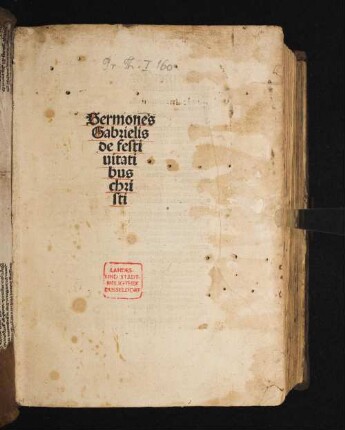 Sermones
Gabrielis
de festi
uitati
bus
chri
sti
LANDES-
UND STADT-
BIBLIOTHEK
DUSSELDORF